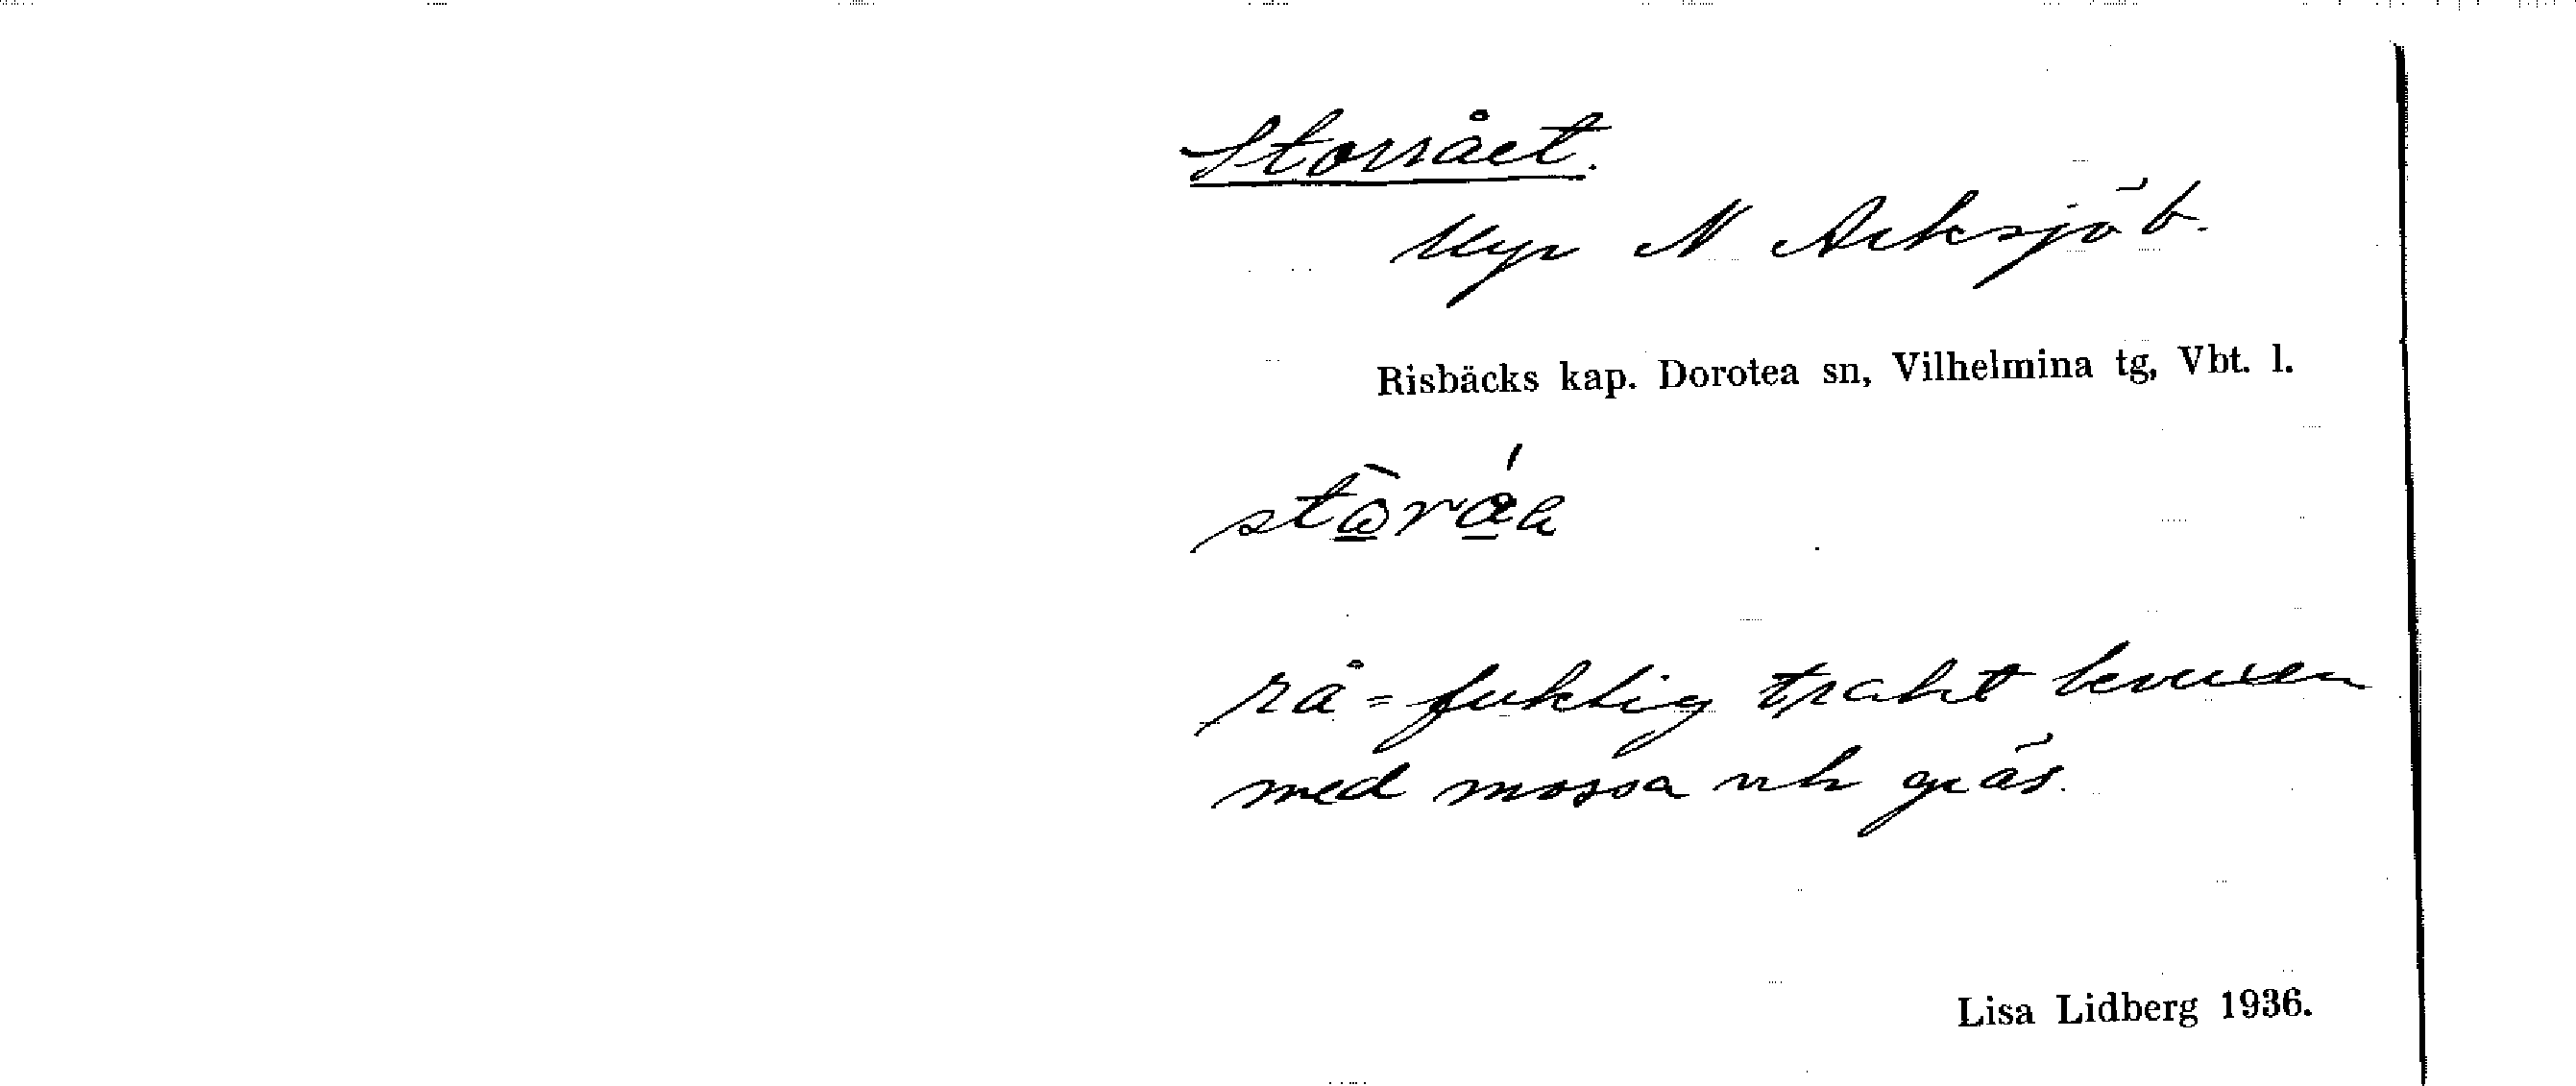 Storrået.
Myr N Arksjö b.
Risbäcks kap. Dorotea sn, Vilhelmina tg, Vbt. l.
rå = fuktig trakt bevuxen
med mossa och gräs.
Lisa Lidberg 1936.